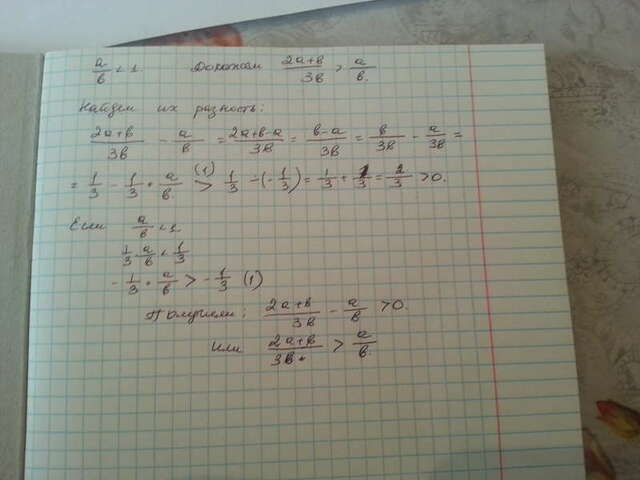 a/b < 1. Докажем (2a+b)/3b > a/b.
Найдем их разность:
(2a+b)/3b - a/b = (2a+b-a)/3b = (b-a)/3b = b/3b - a/3b =
= 1/3 - 1/3 · a/b >(1) 1/3 - (-1/3) = 1/3 + 1/3 = 2/3 > 0.
Если a/b < 1.
1/3 · a/b < 1/3
- 1/3 · a/b > - 1/3 (1)
Получили: (2a+b)/3b - a/b > 0.
Или (2a+b)/3b > a/b.